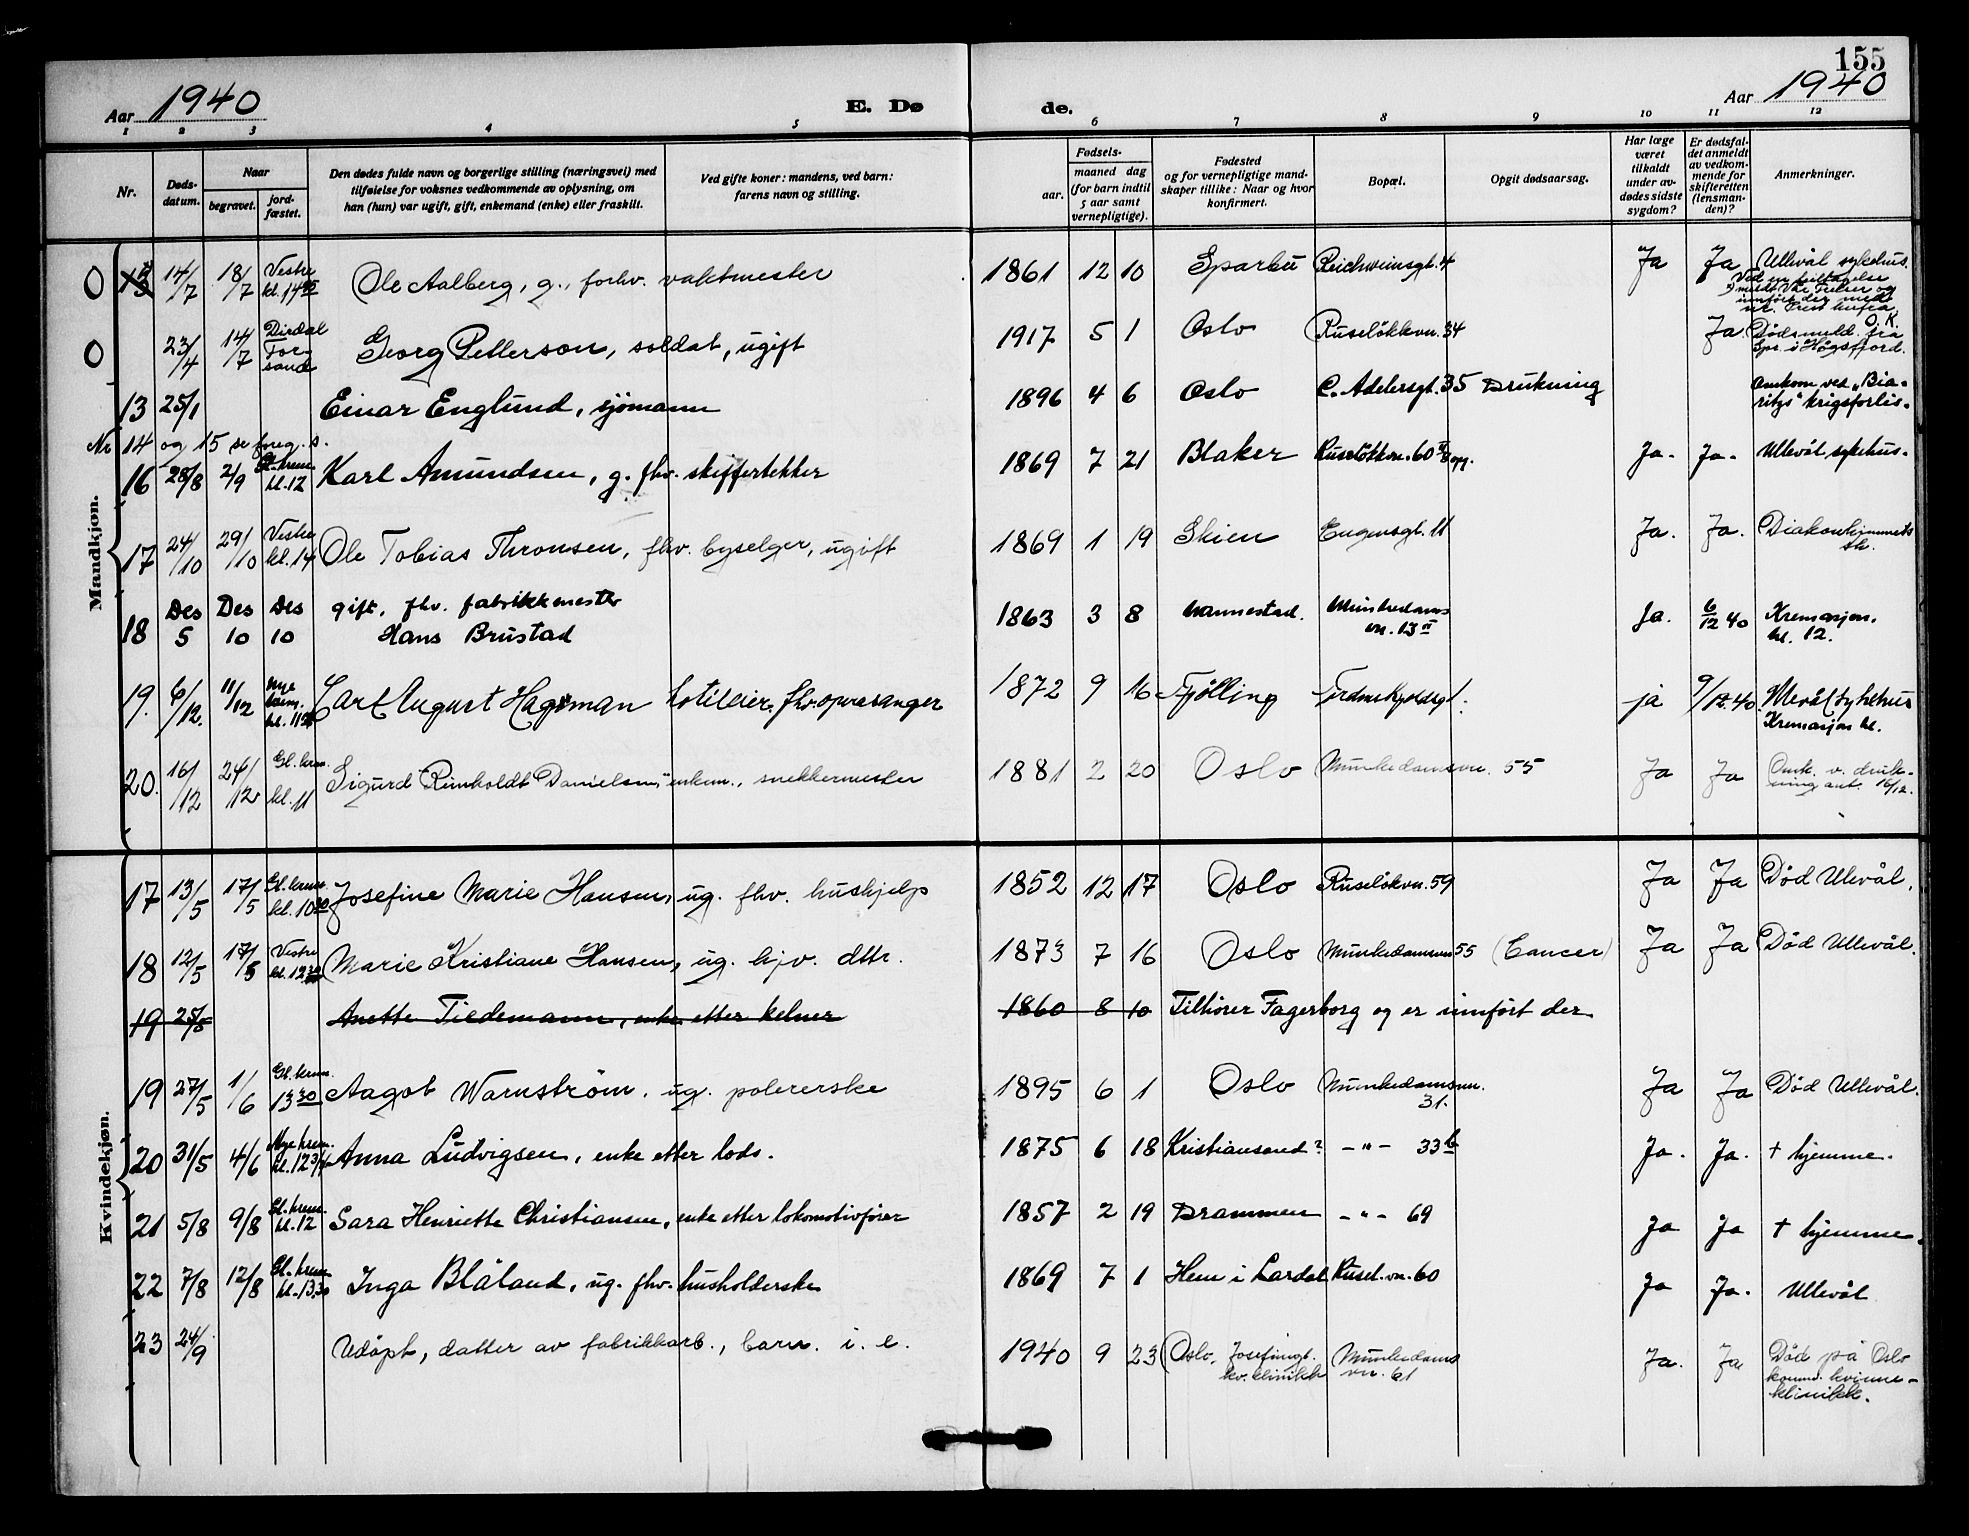 155
Aar 1940 E. Dø de. Aar 1940
1 2 3 4 5 6 7 8 9 10 11 12
Nr. Døds-datum. Naar begravet. jord-fæstet. Den dødes fulde navn og borgerlige stilling (næringsvei) med tilføielse for voksnes vedkommende av oplysning, om han (hun) var ugift, gift, enkemand (enke) eller fraskilt. Ved gifte koner: mandens, ved barn: farens navn og stilling. Fødsels- aar. maaned dag (for barn indtil 5 aar samt vernepligtige). Fødested og for vernepligtige mand-skaper tillike: Naar og hvor konfirmert. Bopæl. Opgit dødsaarsag. Har læge været tilkaldt under av-dødes sidste sygdom? Er dødsfal-det anmeldt av vedkom-mende for skifteretten (lensman-den)? Anmerkninger.
Mandkjøn.
O 14/7 18/7 Vestre kl. 14 Ole Aalberg, g., forhv. vaktmester 1861 12 10 Sparbu Reichweinsgt. 4 Ja Ja Ullevål sykehus. Ved en feiltagelse meldt Vår Frelser og innført der med nr.
O 23/4 14/7 Dirdal Forsand Georg Petterson, soldat, ugift 1917 5 1 Oslo Ruseløkkvn. 34 Ja. O.K. Dødsmeld. fra Spr. i Høgsfjord.
13 25/1 Einar Englund, sjømann 1896 4 6 Oslo C. Adelersgt. 35 Drukning Omkom ved "Bia-ritz" krigsforlis.
Nr 14 og 15 se foreg. s.
16 28/8 2/9 Gl. krem. kl. 12 Karl Amundsen, g. fhv. skiffertekker 1869 7 21 Blaker Ruseløkkvn. 60 Ja. Ja. Ullevål sykehus.
17 24/10 29/10 Vestre kl. 14 Ole Tobias Thronsen, fhv. byselger, ugift 1869 1 19 Skien Eugensgt. 11 Ja. Ja. Diakonhjemmets sk.
18 Des 5 Des 10 Des 10 gift, fhv. fabrikkmester Hans Brustad 1863 3 8 Nannestad. Munkedams vn. 13 II Ja. 6/12 40 Kremasjon. kl. 12.
19. 6/12. 11/12 Nye krem. Carl August Hagman hotelleier, fhv. operasanger 1872 9 16 Tjølling Tordenskjoldsgt. ja 9/12.40. Ullevål sykehus Kremasjon kl.
20. 16/12 24/12 Gl. krem. kl. 11 Sigurd Reinholdt Danielsen, enkem., snekkermester 1881 2 20 Oslo Munkedamsvn. 55 Ja Ja Omk. v. druk-ning ant. 16/12.
Kvindekjøn.
17 13/5 17/5 Gl. krem. kl. 10 Josefine Marie Hansen, ug. fhv. hushjelp 1852 12 17 Oslo Ruseløkvn. 59 Ja Ja Død Ullevål.
18 12/5 17/5 Vestre kl. 12 30 Marie Kristiane Hansen, ug. hjv. dttr. 1873 7 16 Oslo Munkedamsvn 55 (Cancer) Ja Ja Død Ullevål.
19 25/5 Anette Tiedemann, enke etter kelner 1860 8 10 Tilhører Fagerborg og er innført der
19 27/5 1/6 Gl. krem. 13 30 Aagot Warnstrøm, ug. polererske 1895 6 1 Oslo Munkedamsvn. 31. Ja Ja Død Ullevål.
20 31/5 4/6 Nye krem. kl. 12 3/4 Anna Ludvigsen, enke etter lods. 1875 6 18 Kristiansand? -"- 33 b Ja. Ja. † hjemme.
21 5/8 9/8 Gl. krem. kl. 12 Sara Henriette Christiansen, enke etter lokomotivfører 1857 2 19 Drammen -"- 69 Ja Ja † hjemme.
22 7/8 12/8 Gl. krem. kl. 13.30 Inga Blåland, ug. fhv. husholderske 1869 7 1 Hem i Lardal Rusel. vn. 60 Ja Ja. Ullevål
23 24/9 Udøpt, datter av fabrikkarb., barn. i. e. 1940 9 23 Oslo, Josefinegt. kv. klinikk Munkedams vn. 61 Ja. Ja Død på Oslo komm. kvinne-klinikk.